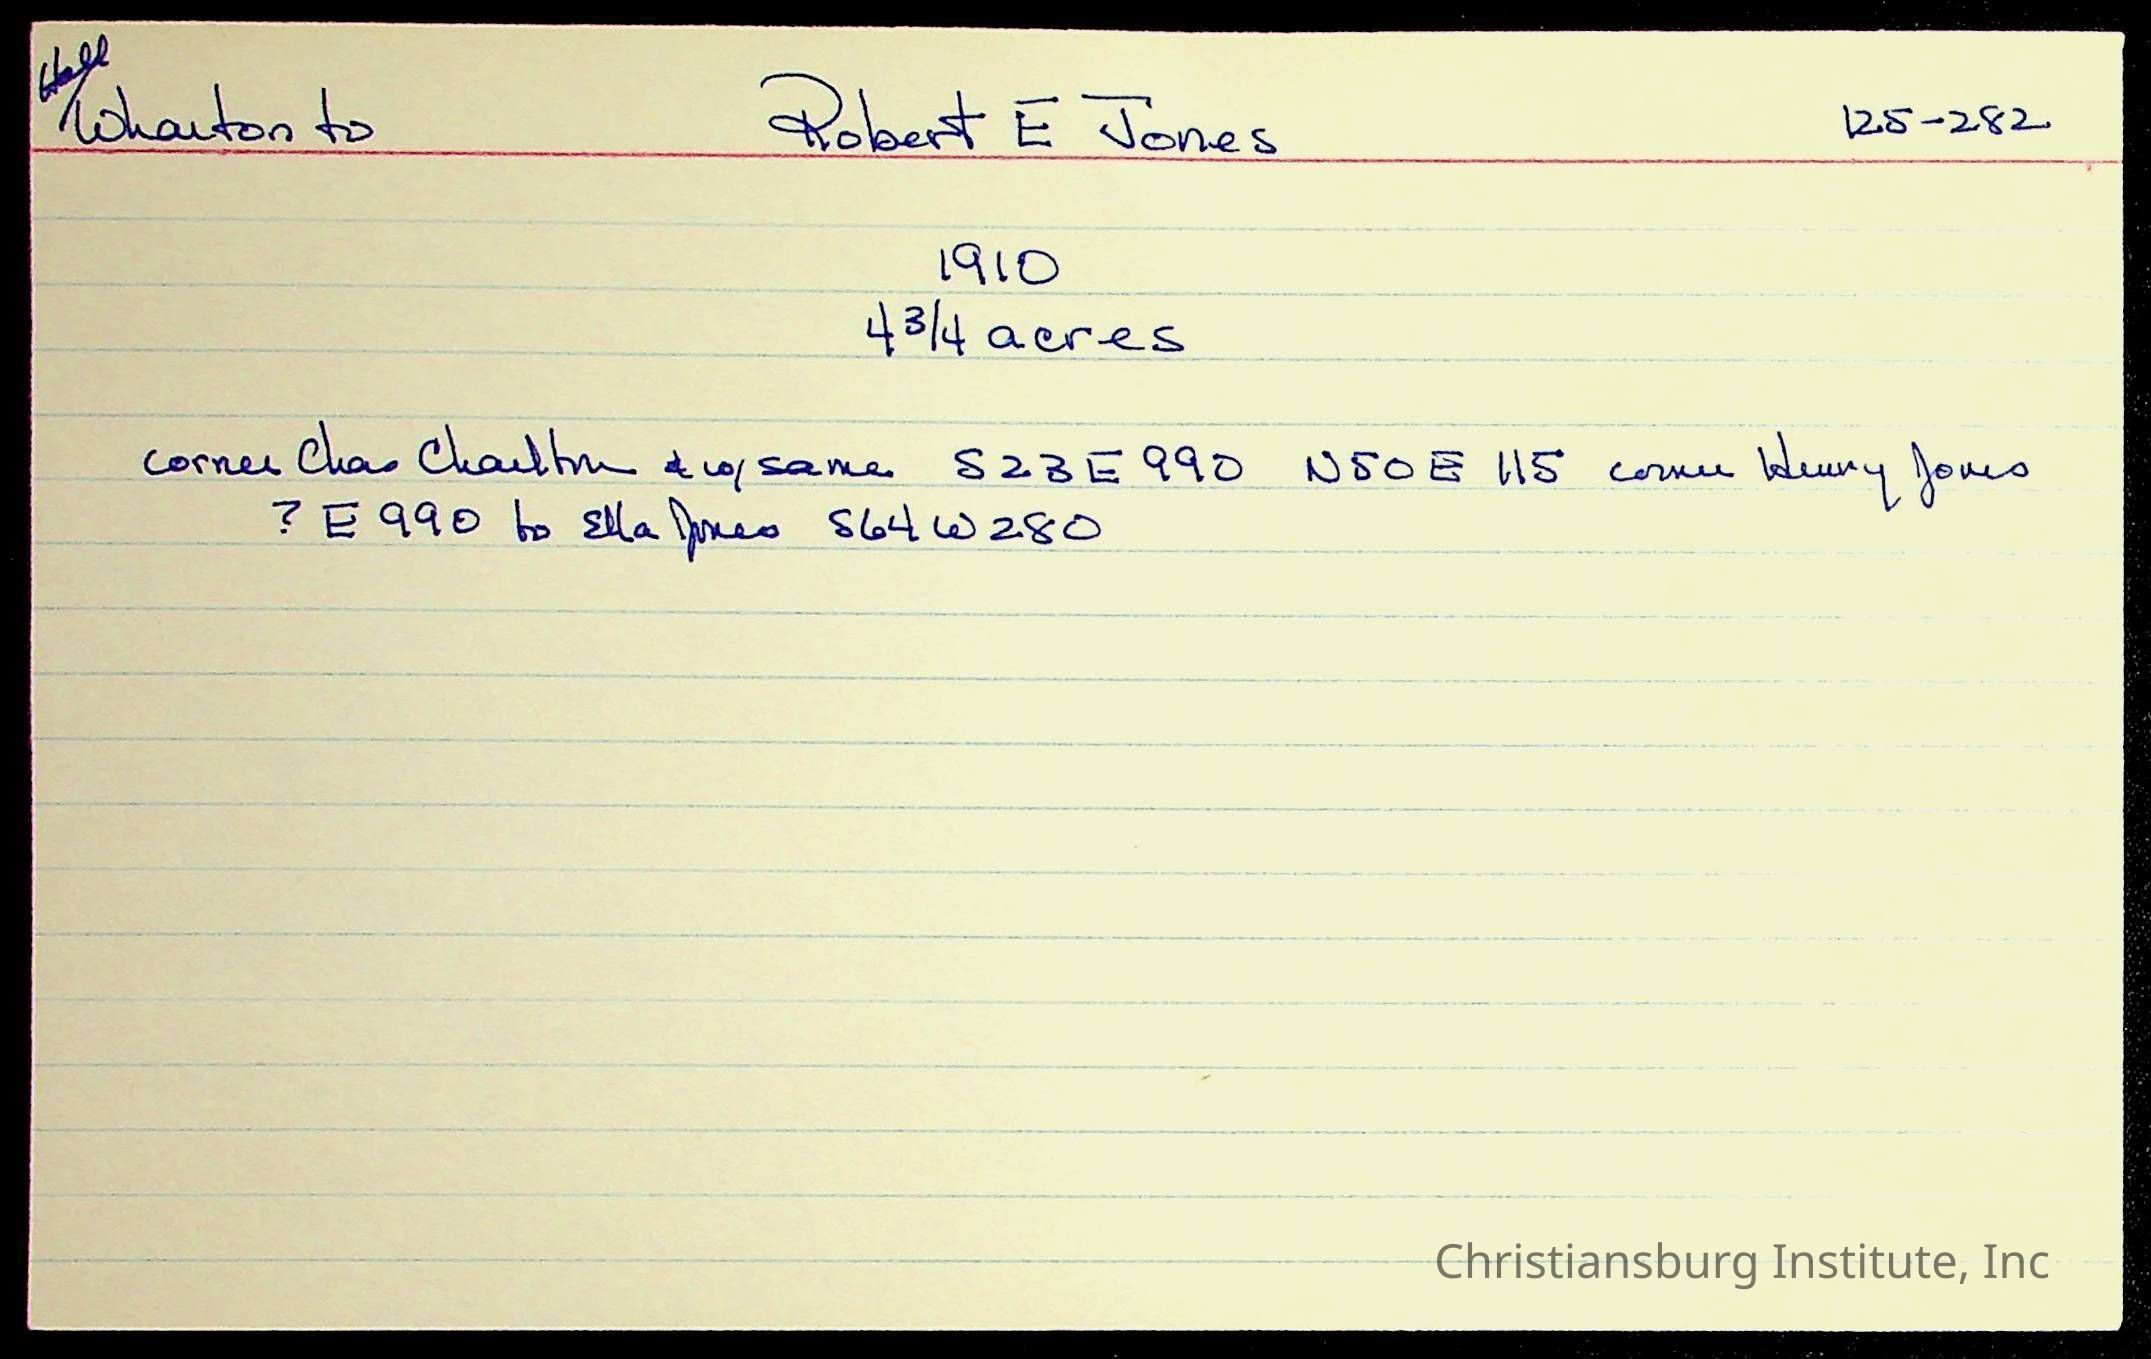 Hall
Wharton to Robert E Jones 125-282
1910
4 3/4 acres
corner Chas Charlton & w/ same S23E 990 N50E 115 corner Henry Jones
? E 990 to Ella Jones S64W280
Christiansburg Institute, Inc